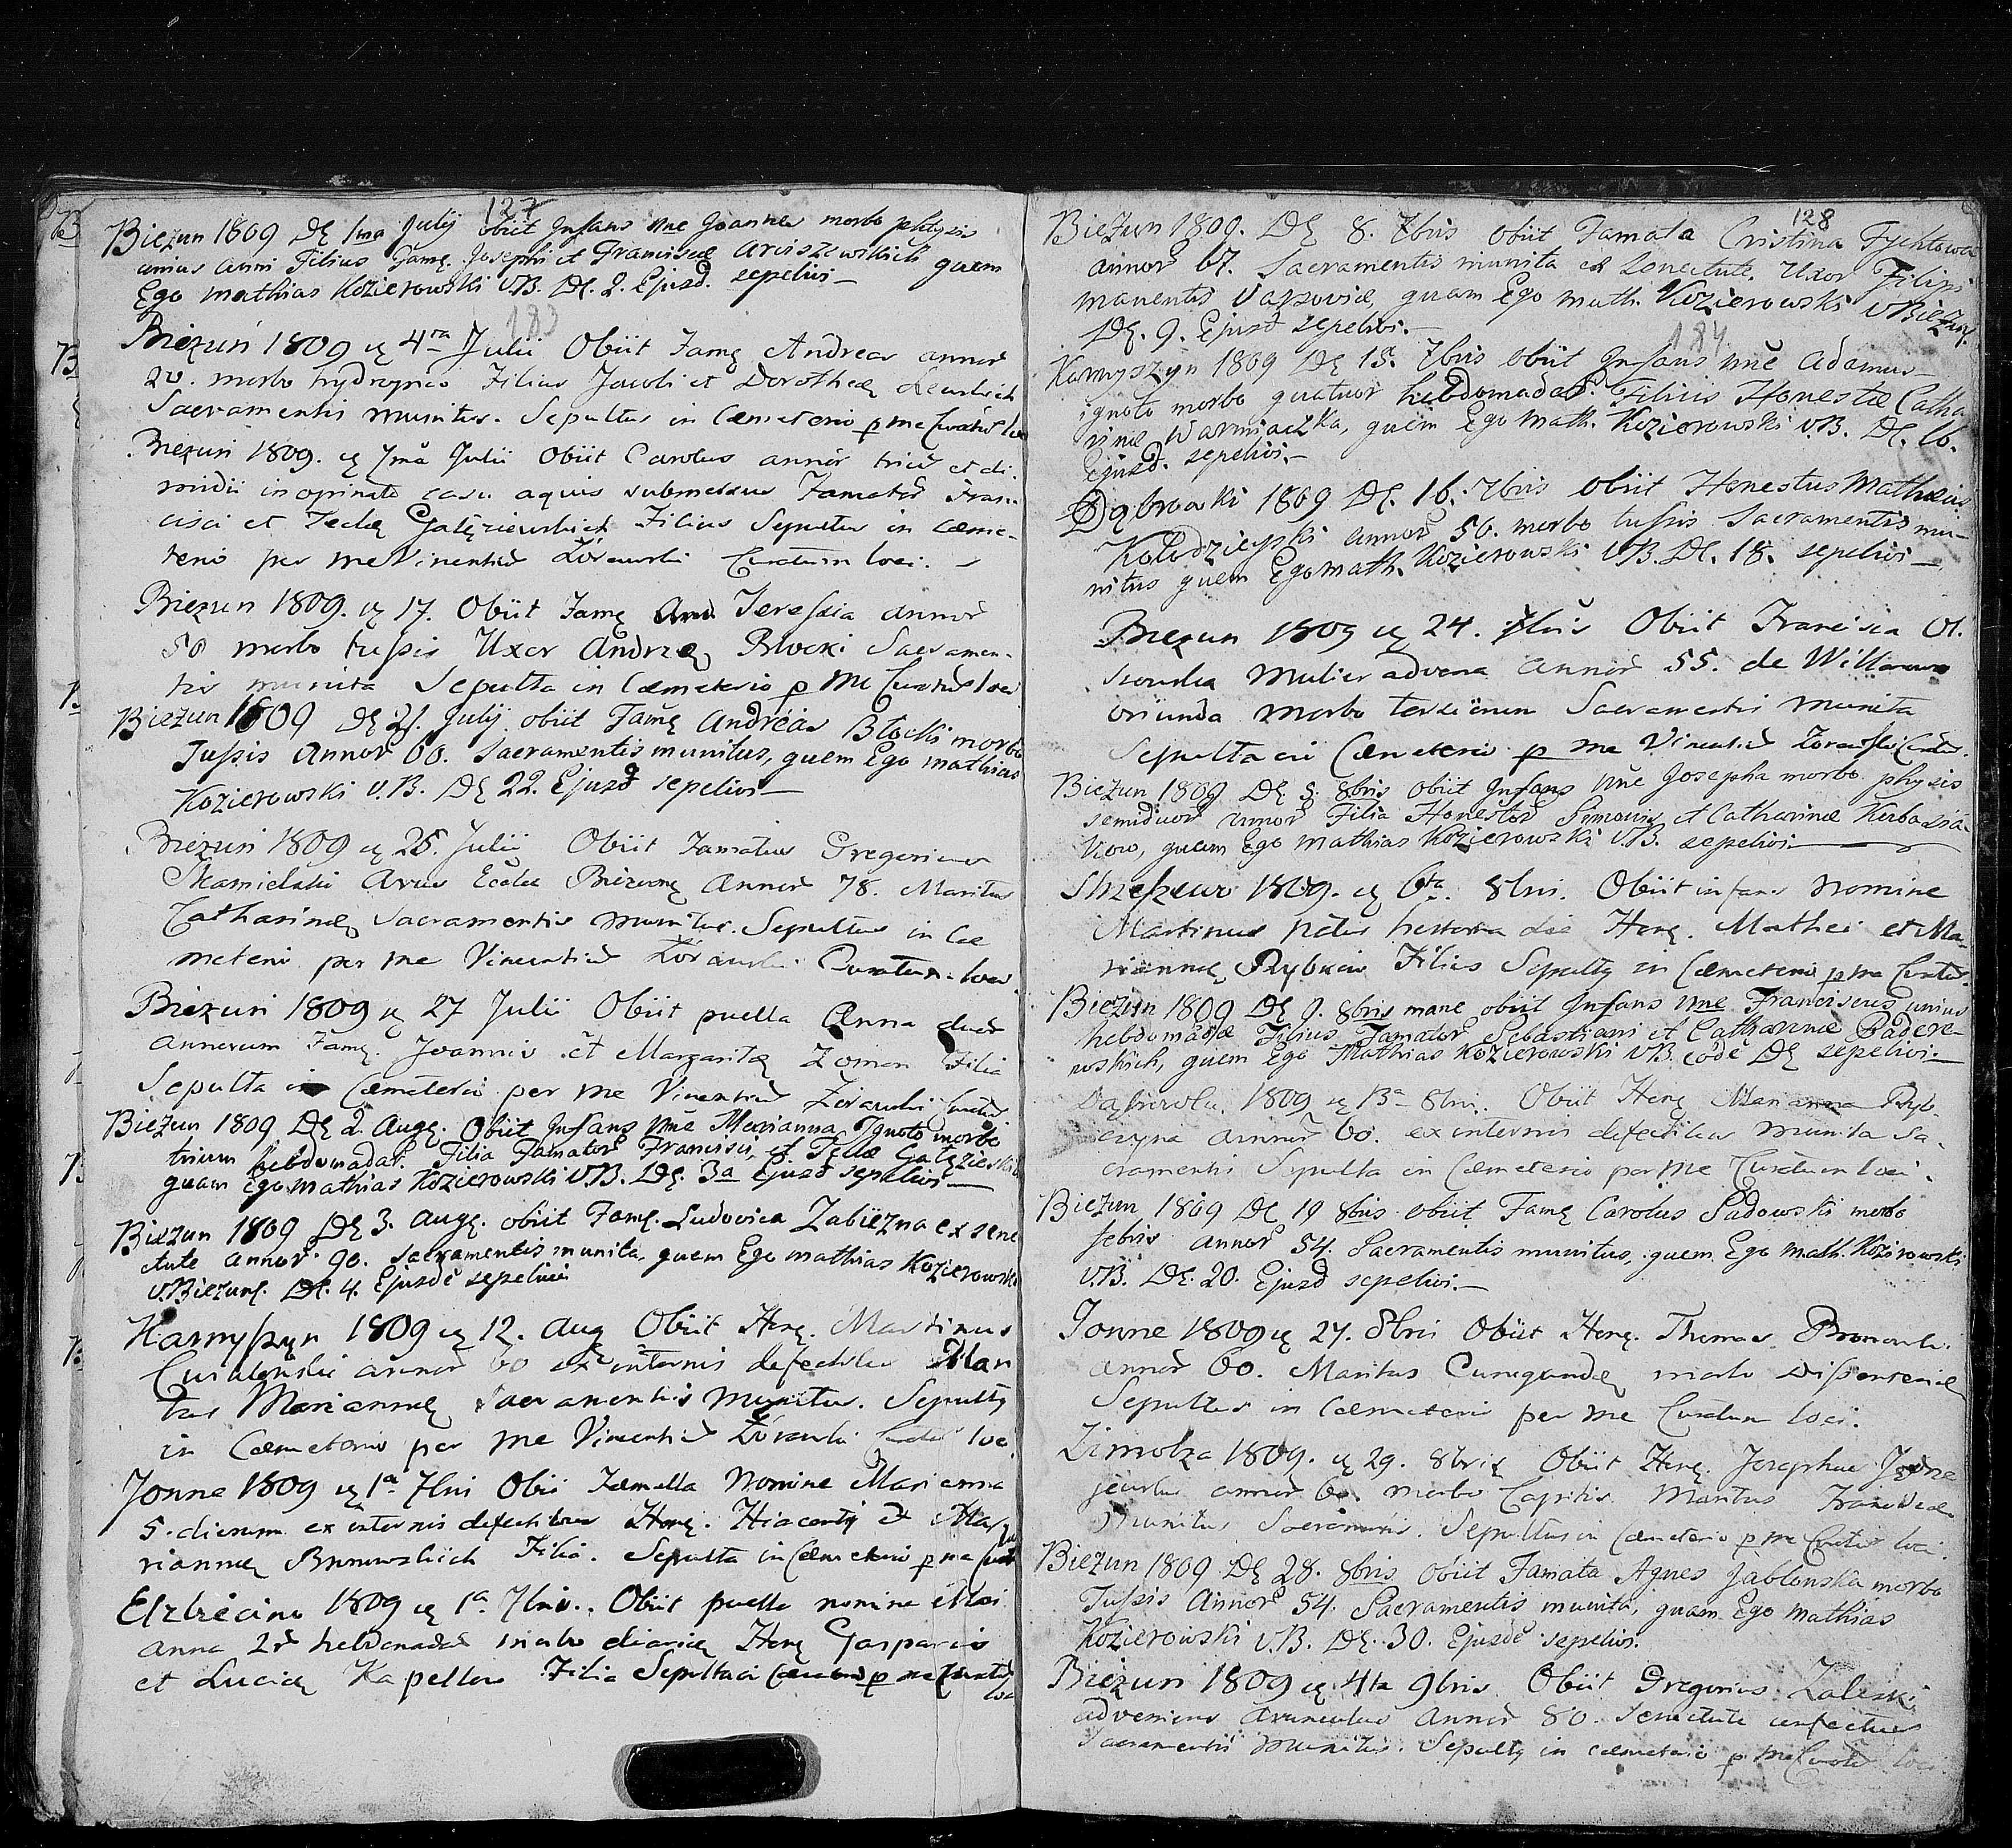 127
Biezun 1809 De 1ma Julij obiit Infans nne Joannes morbo phtysis
unius anni Filius Fam. Josephi et Franciscae Ariszewskich quem
Ego Mathias Kozierowski V.B. De. 2. Ejusd. sepelivi
183
Biezuń 1809 4ta Julii Obiit Fam Andreas annor
20. morbo hydropico Filius Jacobi et Dorotheae
Sacramentis munitus. Sepultus in Caemeterio p me Curatū loci
Biezuń 1809. 7mā Julii Obiit Carolus annor triū et di
midii inopinato casu aquis submersus Famator Fran
cisci et Teclae Gałęziewskich Filius Sepultus in Caeme-
terio per me Vincentiū Żórawski Curatum loci.
Biezuń 1809. 17. Obiit Fam Teressia annor
50 morbo tussis Uxor Andreae Błocki Sacramen-
tis munita Sepulta in Caemeterio p me Curatū loci
Biezun 1809 De 21. Julij obiit Fam Andreas Błocki morbo
Tussis Annor 60. Sacramentis munitus, quem Ego Mathias
Kozierowski V.B. De 22. Ejusd sepelivi
Biezuń 1809 25. Julii Obiit Famatus Gregorius
Annor 78. Maritus
Catharinae Sacramentis munitus. Sepultus in Cae
meterio per me Vincentiū Żórawski Curatum loci.
Biezuń 1809 27 Julii Obiit puella Anna duor
annorum Fam. Joannis et Margaritae Zoman Filia
Sepulta in Caemeterio per me Vincentiū Żórawski Curatū
Biezun 1809 De 2. Aug. Obiit Infans nne Marianna Ignoto morbo
trium hebdomadar. Filia Famator Francisci et Teclae
quam Ego Mathias Kozierowski V.B. De. 3a Ejusd sepelivi
Biezun 1809 De 3. Aug. obiit Fam. Ludovica Zabiezna ex sene
ctute annor 90. Sacramentis munita, quem Ego Mathias Kozierowski
V.Biezun. De. 4. Ejusdē sepelivi
Karnyszyn 1809 12. Aug Obiit Hon. Martinus
annor 60 ex internis defectibus Mari
tus Mariannae Sacramentis munitus. Sepultus
in Caemeterio per me Vincentiū Żórawski Curatū loci
Jonne 1809 1a 7bris Obii Femella Nomine Marianna
5. dierum ex internis defectibus Hon. Hiacenti et Ma
riannae Bronowskich Filia. Sepulta in Caemeterio p me
1809 1a 7bris. Obiit puella nomine Mari
anna 2r hebdomadar morbo Hon Gasparis
et Luciae Kapellow Filia Sepulta in p me Curatū
loci
128
Biezun 1809. De 8. 7bris Obiit Famata Cristina Fychtowa
annor 67. Sacramentis munita ex Senectute. Uxor Filipi
manentis Varsoviae, quam Ego Math. Kozierowski V Biezuń.
De. 9. Ejusd sepelivi.
184
Karnyszyn 1809 De 15. 7bris obiit Infans nnē Adamus
ignoto morbo quatuor hebdomadar. Filius Honestae Catha
rinae Warmiaczka, quem Ego Math. Kozierowski V.B. De. 16.
Ejusd. sepelivi.
Dąbrowki 1809 De. 16. 7bris obiit Honestus Mathaeus
Kołodzieyski annor 50. morbo tussis Sacramentis mu-
nitus quem Ego Math. Kozierowski V.B. De. 18. sepelivi
Biezun 1809 24. 7bris Obiit Francisca Ol.
Mulier advena annor 55. de
oriunda morbo Sacramentis munita
Sepulta in Caemeterio p me Vincentiū
Biezun 1809 De 5. 8bris obiit Infans Nne Josepha morbo physis
semiduor annor Filia Honestor Simonis et Catharinae
kow, quam Ego Mathias Kozierowski V.B. sepelivi.
1809. 6ta 8bris. Obiit infans Nomine
Martinus natus hesterna die Hon. Mathei et Ma-
riannae Rybkow Filius Sepultus in Caemeterio p me Curatū.
Biezun 1809 De 9. 8bris mane obiit Infans nne Franciscus unius
hebdomadae Filius Famator Sebastiani et Catharinae Badere-
wskich, quem Ego Mathias Kozierowski V.B. eodē De sepelivi
1809 13a 8bris. Obiit Hon Marianna Ryb-
czyna annor 60. ex internis defectibus munita Sa-
cramentis Sepulta in Caemeterio per me Curatum loci.
Biezun 1809 De 19 8bris obiit Fam Carolus Sadowski morbo
febris annor 54. Sacramentis munitus, quem Ego Math. Kozierowski
V.B. De. 20. Ejusd sepelivi.
Jonne 1809 27. 8bris Obiit Hon. Thomas
annor 60. Maritus Cunegundae morbo
Sepultus in Caemeterio per me Curatum loci.
Zimolza 1809. 29. 8bris Obiit Hon. Josephus
annor 60. morbo Capitis Maritus Franciscae
munitus Sacramentis. Sepultus in Caemeterio p me Curatū loci.
Biezun 1809 De 28. 8bris obiit Famata Agnes Jablonska morbo
Tussis Annor 54. Sacramentis munita, quam Ego Mathias
Kozierowski V.B. De. 30. Ejusdē sepelivi.
Biezun 1809 4ta 9bris Obiit Gregorius Zaleski
annor 80. Senectute confectus
Sacramentis munitus. Sepultus in caemeterio p me Curatū loci